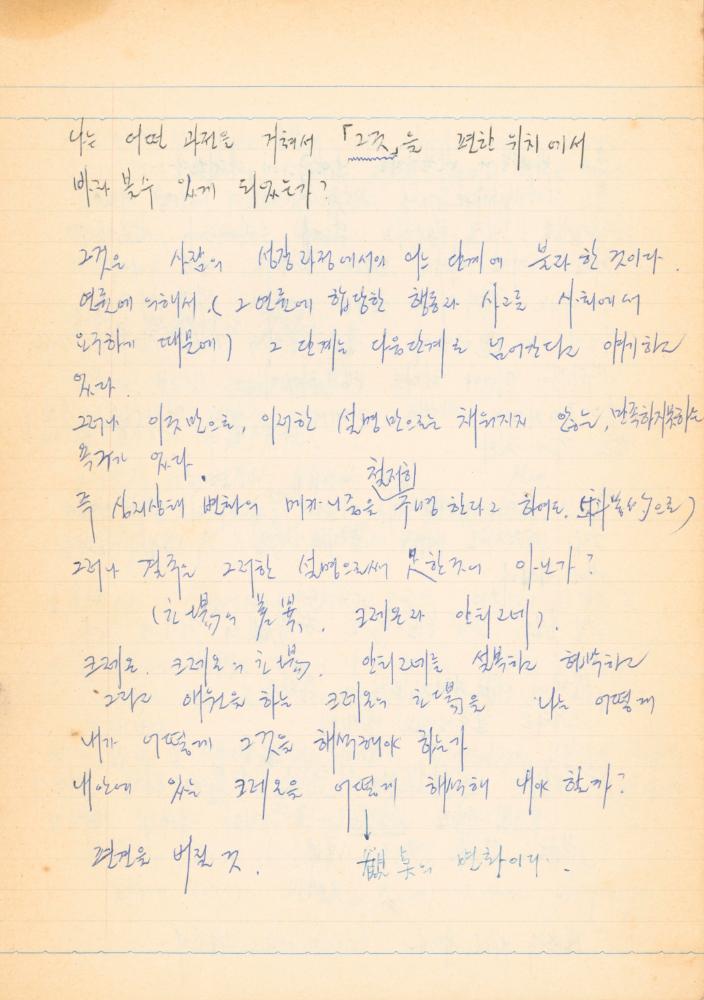 나는 어떤 과전을 거쳐서 「그것」을 편한 위치에서
바라 볼수 있게 되었는가?
그것은 사람의 성장과정에서의 어느 단계에 불과 한 것이다.
연륜에 의해서. (그 연륜에 합당한 행동과 사고를 사회에서
요구하기 때문에) 그 단계는 다음단계로 넘어간다고 얘기하고
있다.
그러나 이것만으로, 이러한 설명만으로는 채워지지 않는, 만족하지못하는
욕구가 있다.
즉 심리상태 변화의 메카니즘을 철저히 구명한다고 하여도. 으로)
그러나 결국은 그러한 설명으로써 족한것이 아닌가?
크레온과 안티고네).
크레온. 크레온의 안티고네를 설복하고 협박하고
그리고 애원을 하는 크레온의 을 나는 어떻게
내가 어떻게 그것을 해석해야 하는가
내안에 있는 크레온을 어떻게 해석해 내야 할까?
편견을 버릴 것. 觀点의 변화이다..